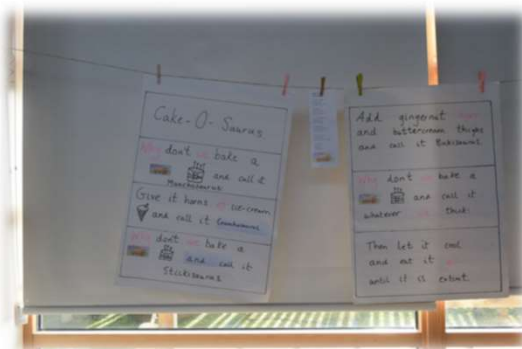 Cake-O-Saurus
Why don't we bake a
and call it
Munchosaurus
Give it horns of ice-cream
and call it
Why don't we bake a
and call it
Stickisaurus
Add gingernut
and buttercream thighs
and call it
Why don't we bake a
and call it
whatever is thick.
Then let it cool
and eat it
until it is extinct.